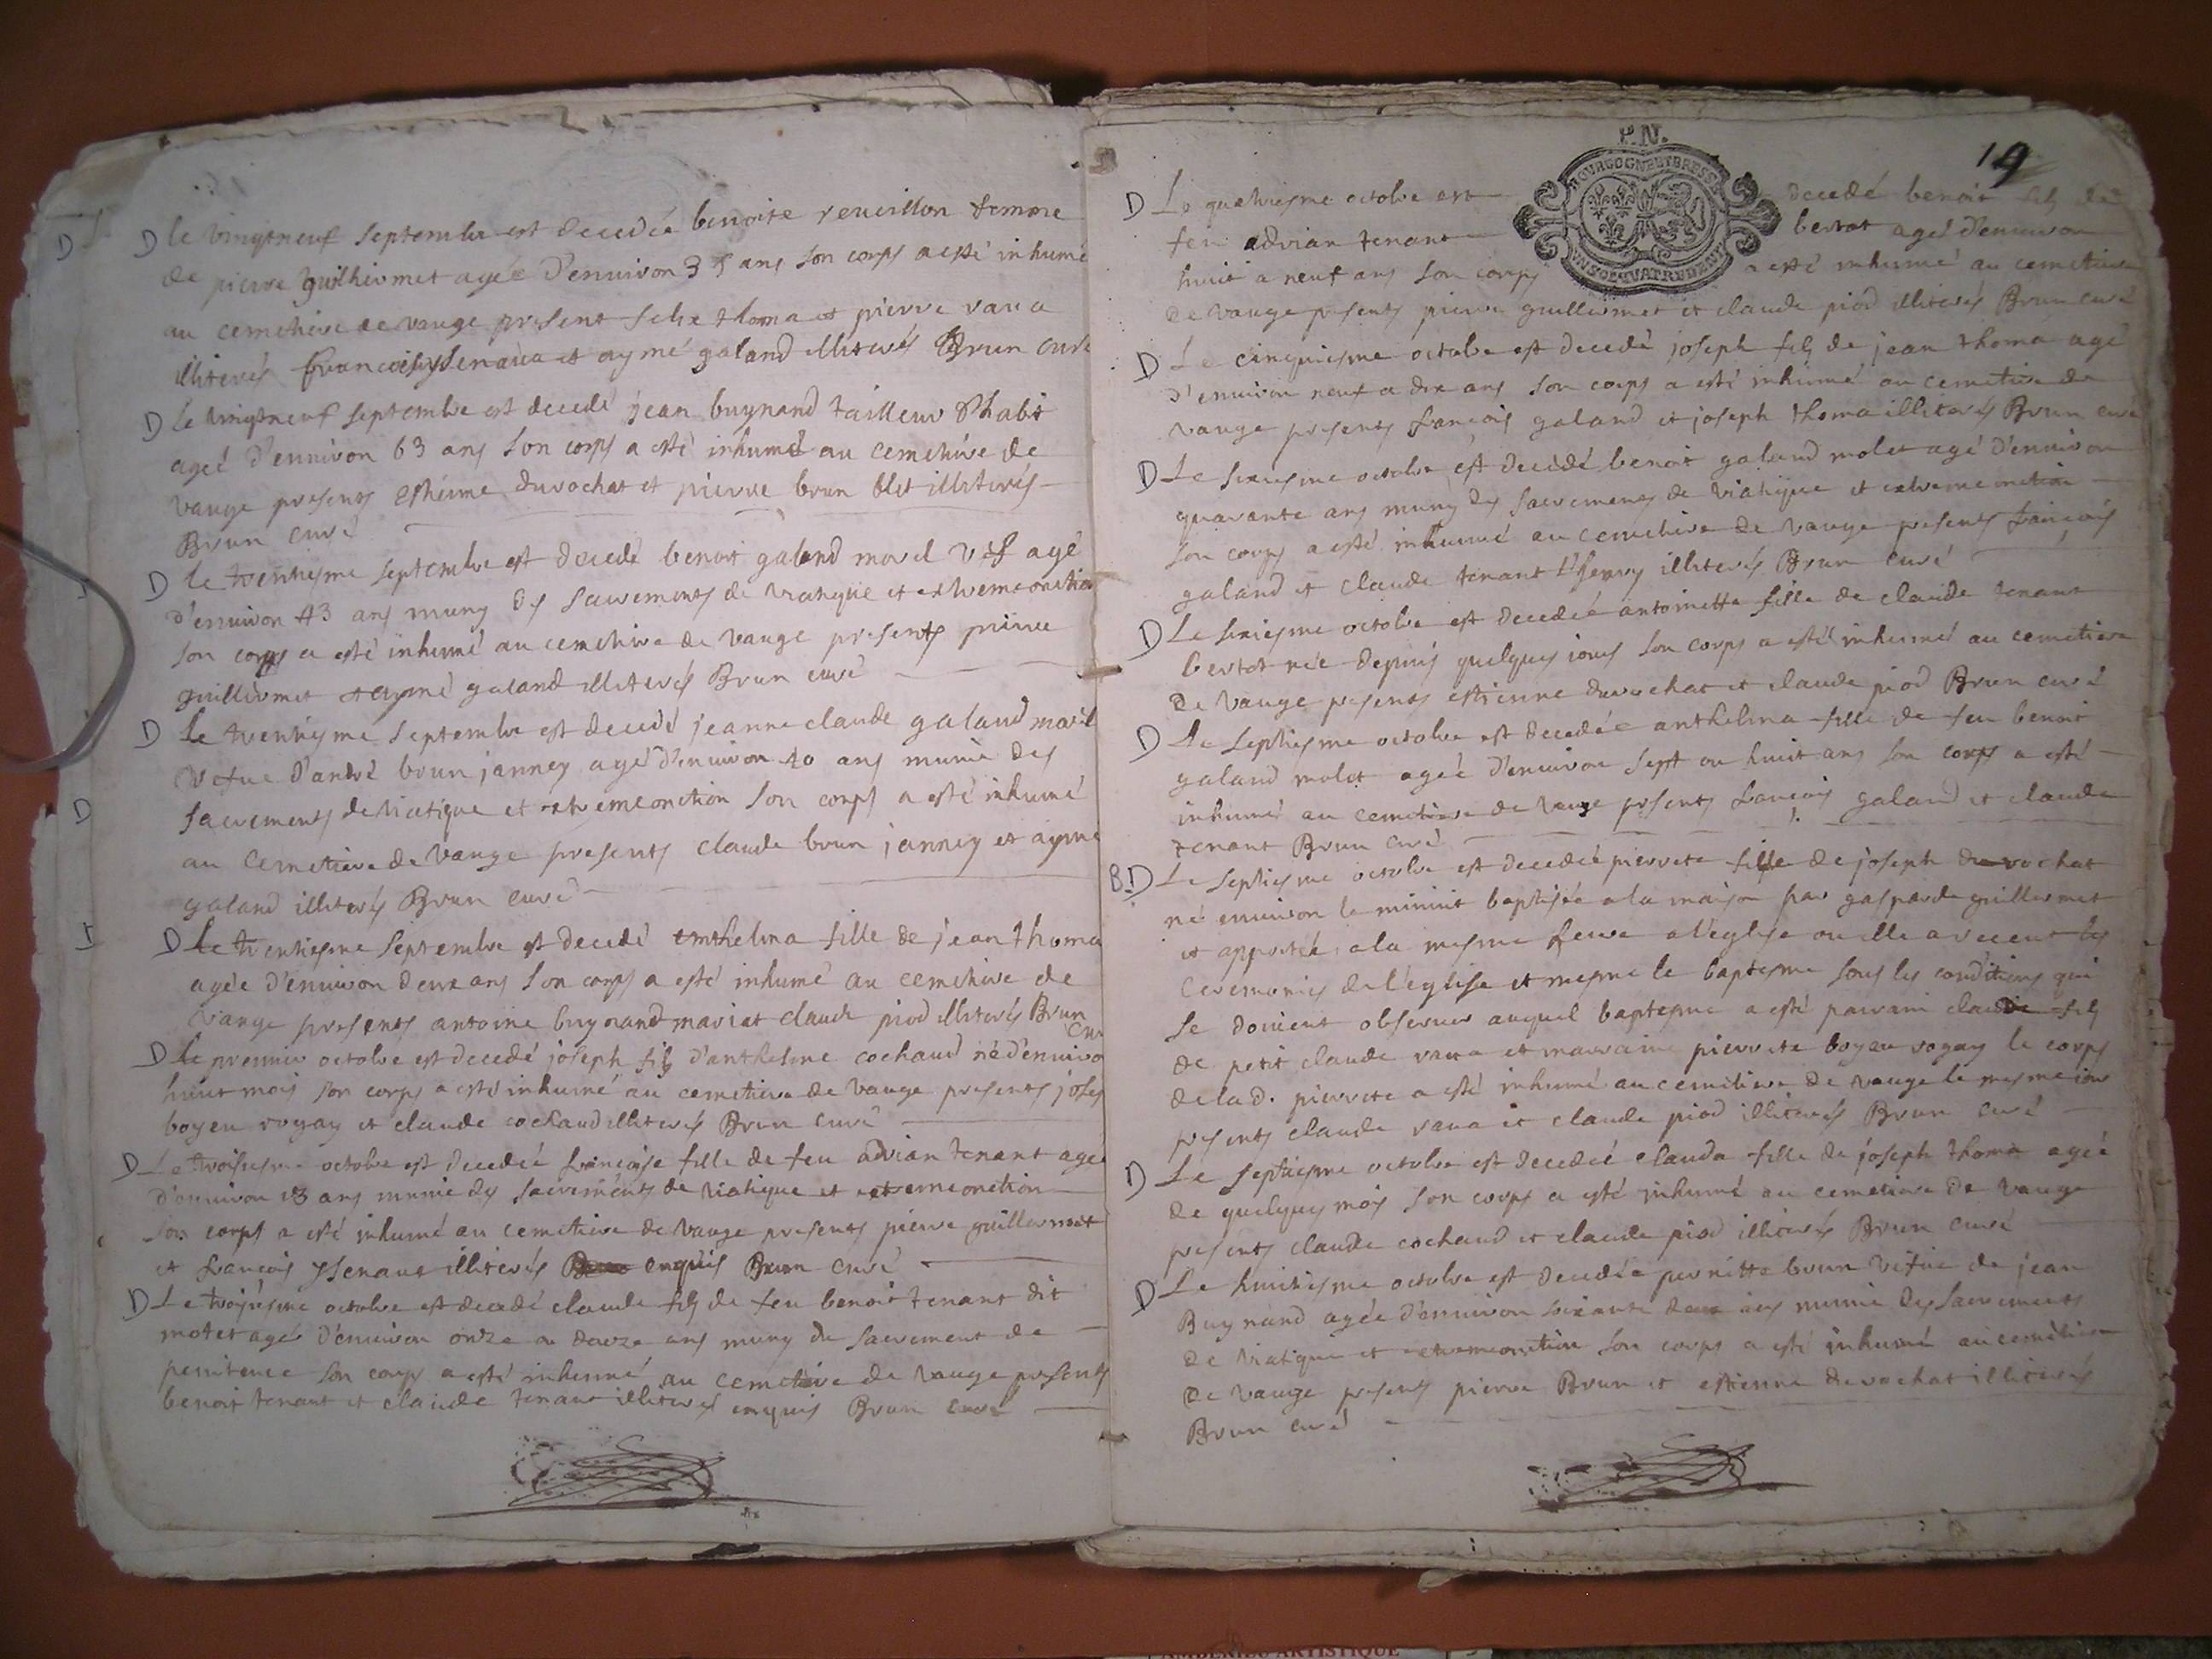 D le vingtneuf septembre est decedée benoite reuerillon femme
de pierre guilhermet agée d'enuiron 35 ans son corps a esté inhumé
au cemetiere de vauge present felix thoma et pierre raua
illiterés francois ysenaua et aymé galand illiterés Brun curé
D le vingtneuf septembre est decedé jean buynand tailleur d'habit
ageé d'enuiron 63 ans son corps a esté inhumé au cemetiere de
vauge presents estienne durochat et pierre brun illiterés
Brun curé
D le trentiesme septembre est decedé benoit galand morel agé
d'enuiron 43 ans muny des sacrements de viatique et extremeonction
son corps a esté inhumé au cemetiere de vauge presents pierre
guillermet et aymé galand illiterés Brun curé
D le trentiesme septembre est decedé jeanne claude galand morel
vefue d'andré brun janney agé d'enuiron 40 ans munie des
D sacrements de viatique et extremeonction son corps a esté inhumé
au cemetiere de vauge presents claude brun janney et aymé
galand illiterés Brun curé
D le trentiesme septembre est decedé anthelma fille de jean thoma
agée d'enuiron deux ans son corps a esté inhumé au cemetiere de
vauge presents antoine buynand mari et claude piod illiterés Brun
curé
D le premier octobre est decedé joseph fils d'anthelme cochaud né d'enuiro
huit mois son corps a esté inhumé au cemetiere de vauge presents josep
boyeu rogay et claude cochaud illiterés Brun curé
D Le troisiesme octobre est decedée françoise fille de feu adrian tenant agée
d'enuiron 18 ans munie des sacrements de viatique et extremeonction
son corps a esté inhumé au cemetiere de vauge presents pierre guillermet
et francois ysenaua illiterés enquis Brun curé
D Le troisiesme octobre est decedé claude fils de feu benoit tenant dit
motet agé d'enuiron onze a douze ans muny du sacrement de
penitence son corps a esté inhumé au cemetiere de vauge presents
benoit tenant et claude tenant illiterés enquis Brun curé
P.N.
19
BOURGOGNE ET BRESSE
UN SOL QUATRE DEN
D Le quatriesme octobre est decedé benoit fils de
feu adrian tenant bertot agé d'enuiron
huit a neuf ans son corps a esté inhumé au cemetiere
de vauge presents pierre guillermet et claude piod illiterés Brun curé
D Le cinquiesme octobre est decedé joseph fils de jean thoma agé
d'enuiron neuf a dix ans son corps a esté inhumé au cemetiere de
vauge presents francois galand et joseph thoma illiterés Brun curé
D Le sixiesme octobre est decedé benoit galand molet agé d'enuiron
quarante ans muny des sacrements de viatique et extreme onction
son corps a esté inhumé au cemetiere de vauge presents francois
galand et claude tenant illiterés Brun curé
D Le sixiesme octobre est decedée antoinette fille de claude tenant
bertot née depuis quelques jours son corps a esté inhumé au cemetiere
de vauge presents estienne durochat et claude piod Brun curé
D Le septiesme octobre est decedée anthelma fille de feu benoit
galand molet ageé d'enuiron sept ou huit ans son corps a esté
inhumé au cemetiere de vauge presents francois galand et claude
tenant Brun curé
B. D Le septiesme octobre est decedée pierrete fille de joseph durochat
né enuiron le minuit baptisée a la maison par gasparde guillermet
et apportée a la mesme heure a l'eglise ou elle a receut les
ceremonies de l'eglise et mesme le baptesme sous les conditions qui
se doiuent obseruer auquel baptesme a esté parrain claude fils
de petit claude raua et marraine pierrete boyeu rogay le corps
de lad. pierrete a esté inhumé au cemetiere de vauge le mesme jour
presents claude raua et claude piod illiterés Brun curé
D Le septiesme octobre est decedéé clauda fille de joseph thoma ageé
de quelques mois son corps a esté inhumé au cemetiere de vauge
presents claude cochaud et claude piod illiterés Brun curé
D Le huitiesme octobre est decedée pernette brun vefue de jean
Buynand agée d'enuiron soixante deux ans munie des sacrements
de viatique et extremeonction son corps a esté inhumé au cemetiere
de vauge presents pierre Brun et estienne durochat illiterés
Brun curé